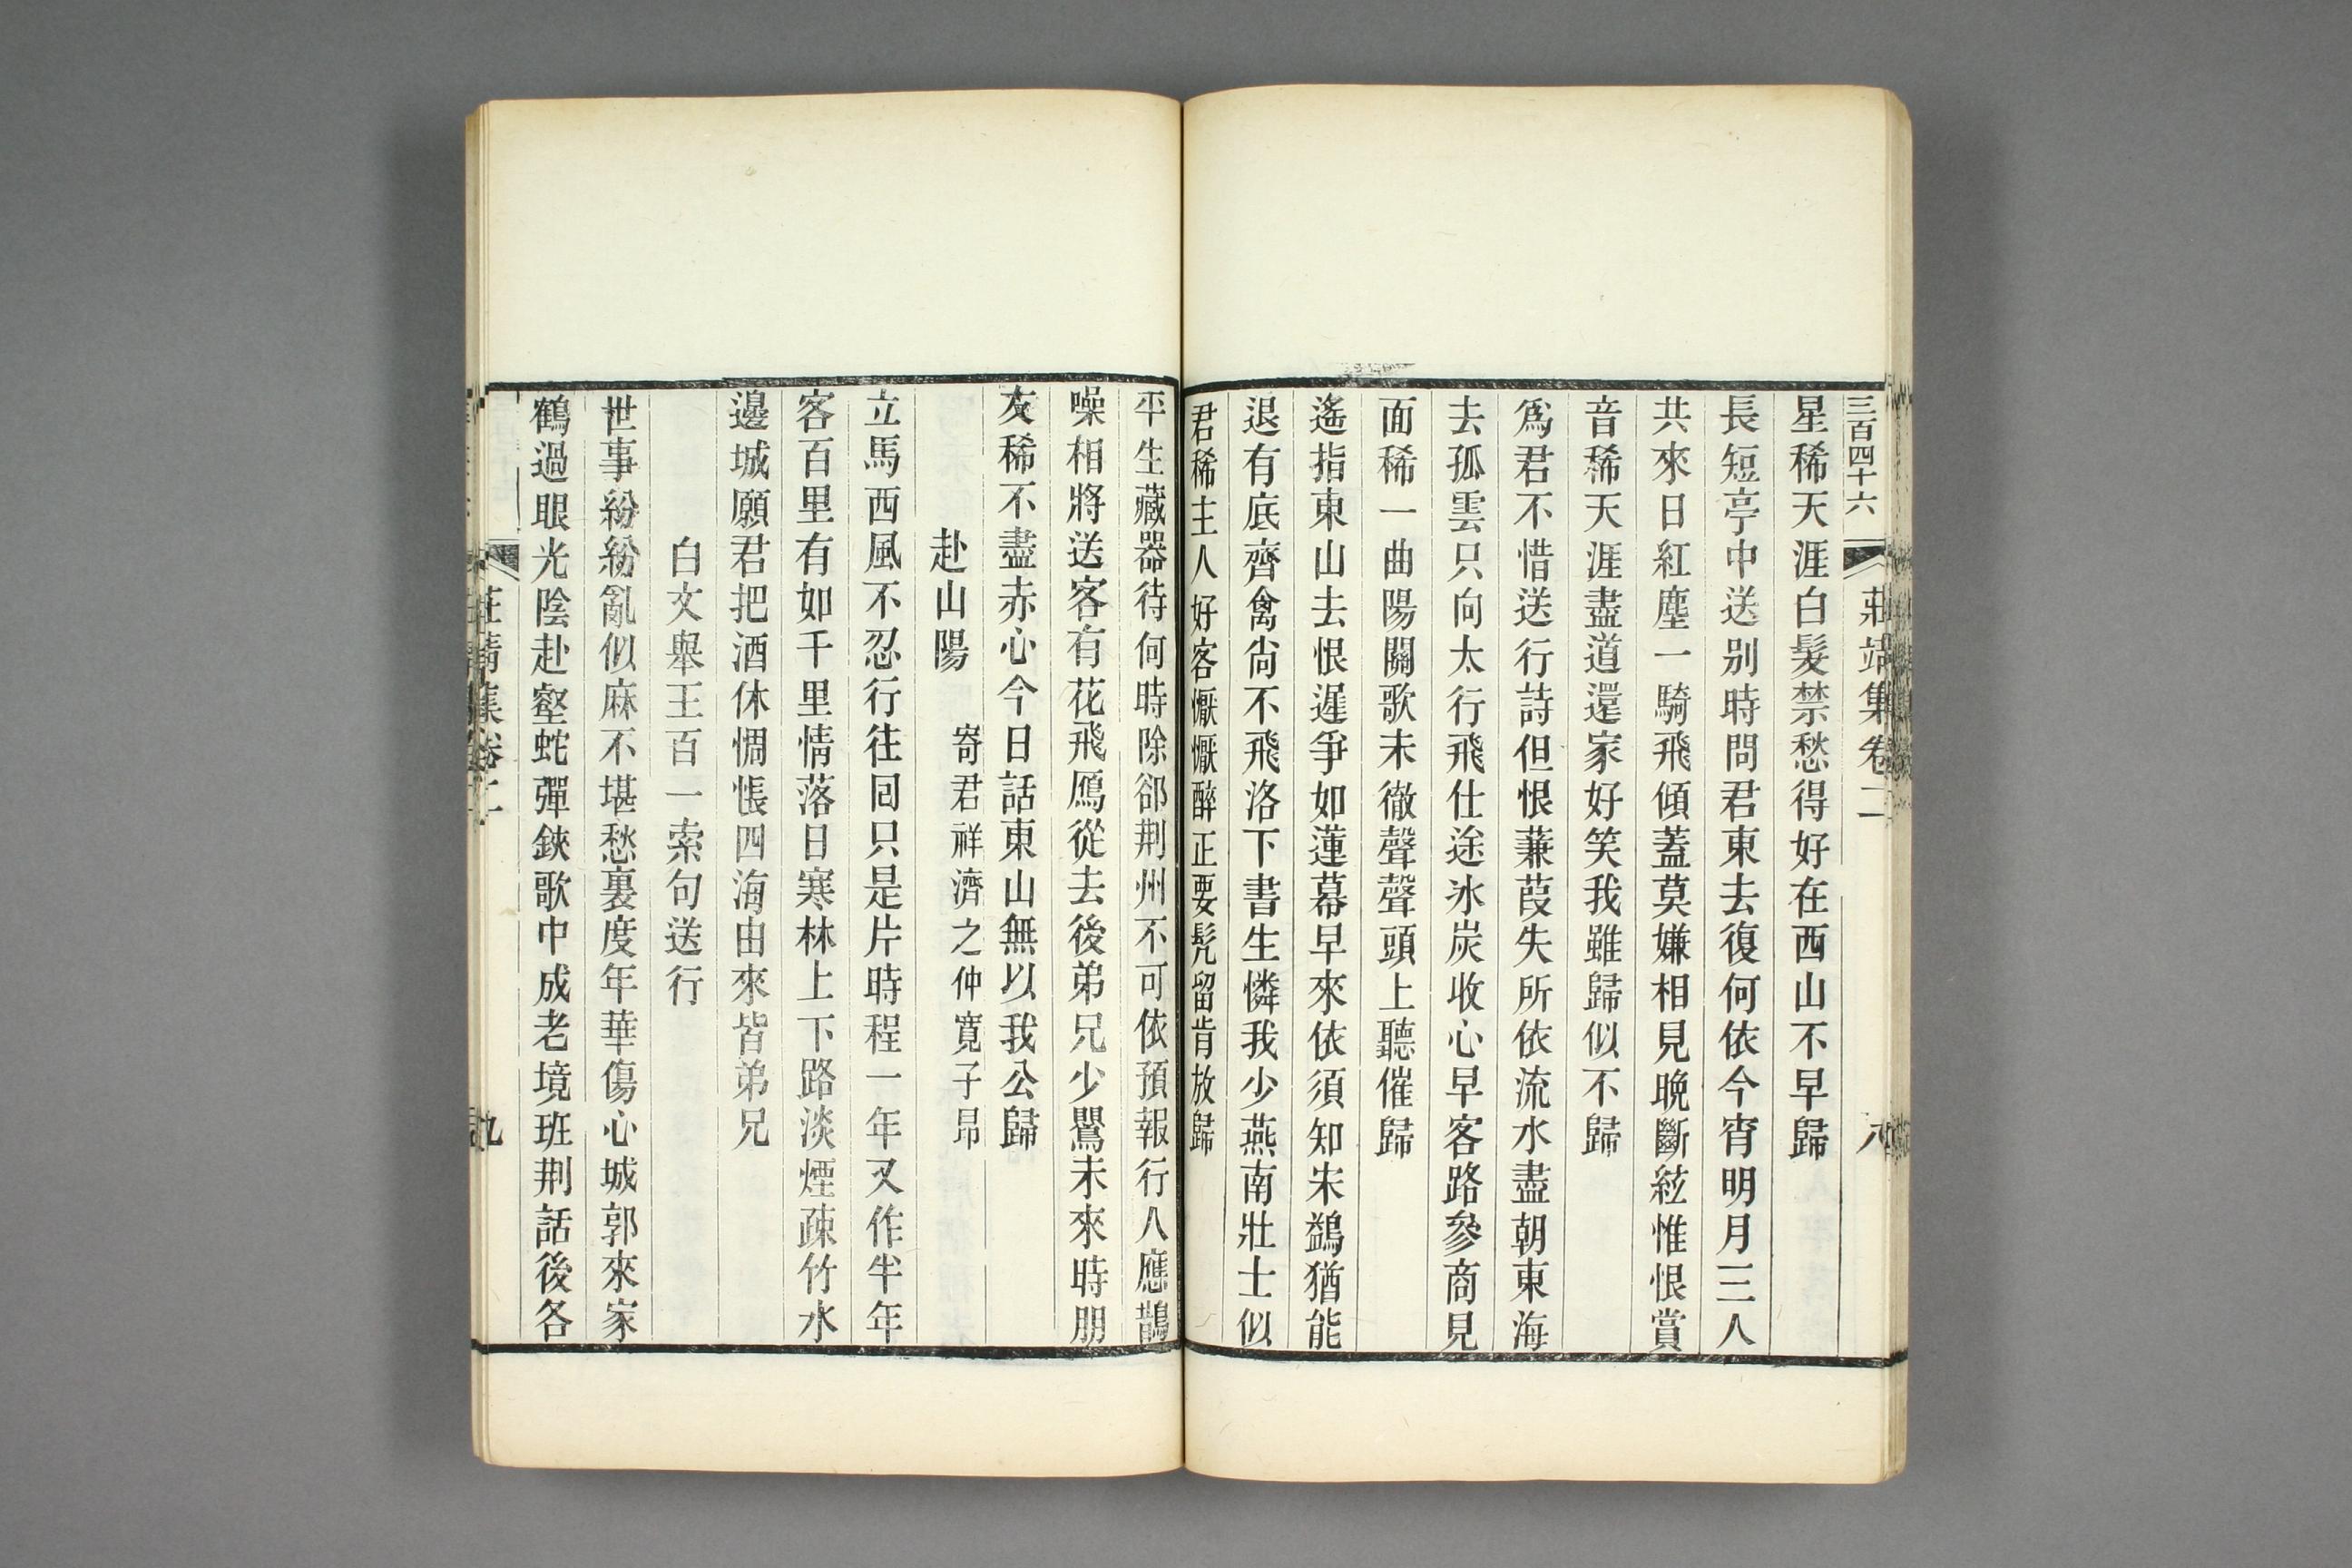 三百四十六 莊靖集卷二 八
星稀天涯白髮禁愁得好在西山不早歸
長短亭中送別時問君東去復何依今宵明月三人
共來日紅塵一騎飛傾蓋莫嫌相見晚斷絃惟恨賞
音稀天涯盡道還家好笑我雖歸似不歸
爲君不惜送行詩但恨蒹葭失所依流水盡朝東海
去孤雲只向太行飛仕途冰炭收心早客路參商見
面稀一曲陽關歌未徹聲聲頭上聽催歸
遙指東山去恨遲爭如蓮幕早來依須知宋鷁猶能
退有底齊禽尙不飛洛下書生憐我少燕南壯士似
君稀主人好客懨懨醉正要髠留肯放歸
平生藏器待何時除卻荆州不可依預報行人應鵲
噪相將送客有花飛鴈從去後弟兄少鸎未來時朋
友稀不盡赤心今日話東山無以我公歸
赴山陽 寄君祥濟之仲寬子昂
立馬西風不忍行往回只是片時程一年又作半年
客百里有如千里情落日寒林上下路淡煙疎竹水
邊城願君把酒休惆悵四海由來皆弟兄
白文舉王百一索句送行
世事紛紛亂似麻不堪愁裏度年華傷心城郭來家
鶴過眼光陰赴壑蛇彈鋏歌中成老境班荆話後各
莊靖集卷二 九